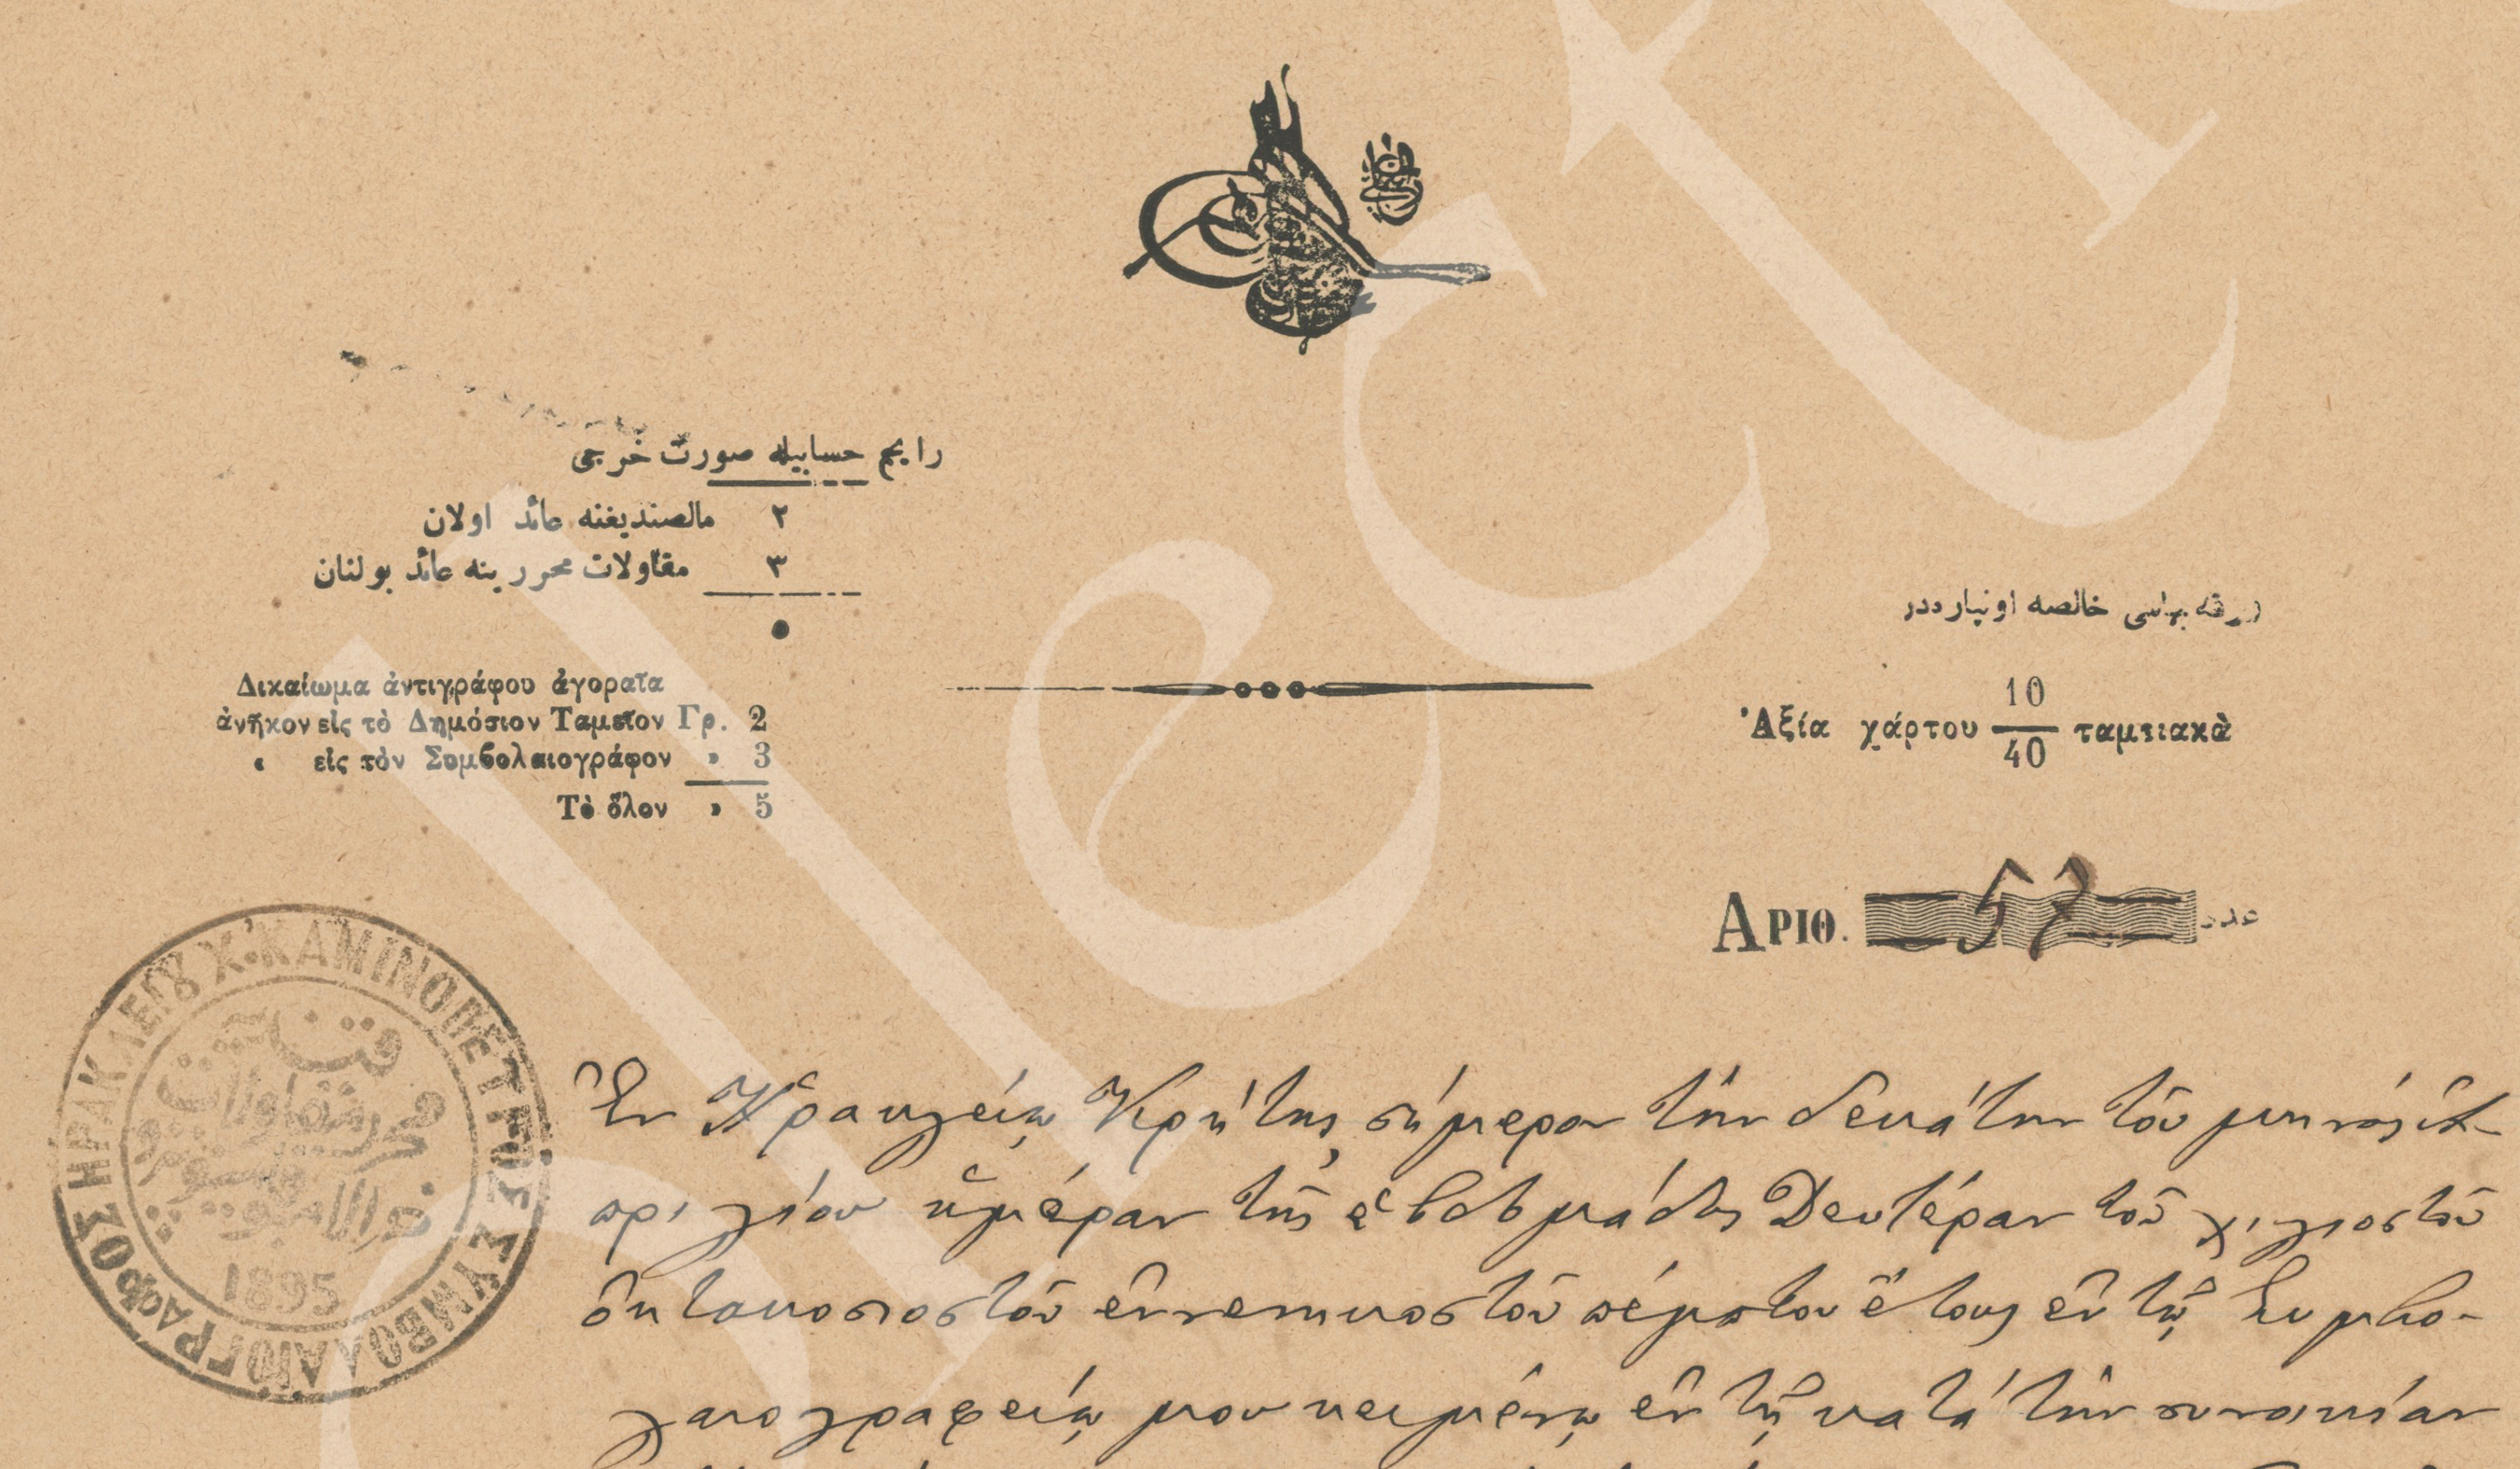 رایج حسابیله صورت خرجی
٢ مالصندیغنه عائد اولان
٣ مقاولات محررینه عائد بولنان
٥
ورقه بهاسی خالصه اونپاره‌در
Δικαίωμα ἀντιγράφου ἀγοραῖα
ἀνῆκον εἰς τὸ Δημόσιον Ταμεῖον Γρ. 2
« εἰς τὸν Συμβολαιογράφον » 3
Τὸ ὅλον » 5
Ἀξία χάρτου 10/40 ταμειακὰ
ΑΡΙΘ. 57 عدد
ΣΥΜΒΟΛΑΙΟΓΡΑΦΟΣ ΗΡΑΚΛΕΙΟΥ Χ.ΚΑΜΙΝΟΠΕΤΡΟΣ
محرر مقاولات
1895
Ἐν Ἡρακλείῳ Κρήτης σήμερον τὴν δεκάτην τοῦ μηνὸς Ἀ-
πριλίου ἡμέραν τῆς ἑβδομάδος Δευτέραν τοῦ χιλιοστοῦ
ὀκτακοσιοστοῦ ἐννενηκοστοῦ πέμπτου ἔτους ἐν τῷ Συμβο-
λαιογραφείῳ μου κειμένῳ ἐν τῇ κατὰ τὴν συνοικίαν